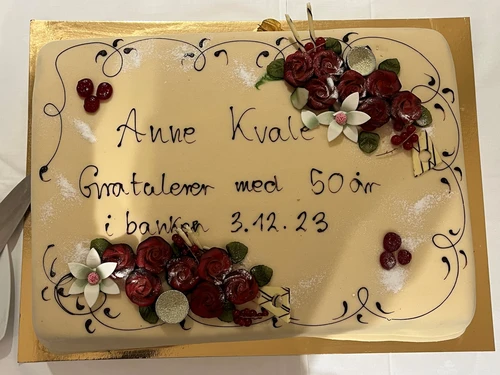 Anne Kvale
Gratalerer med 50 år
i banken 3.12.23